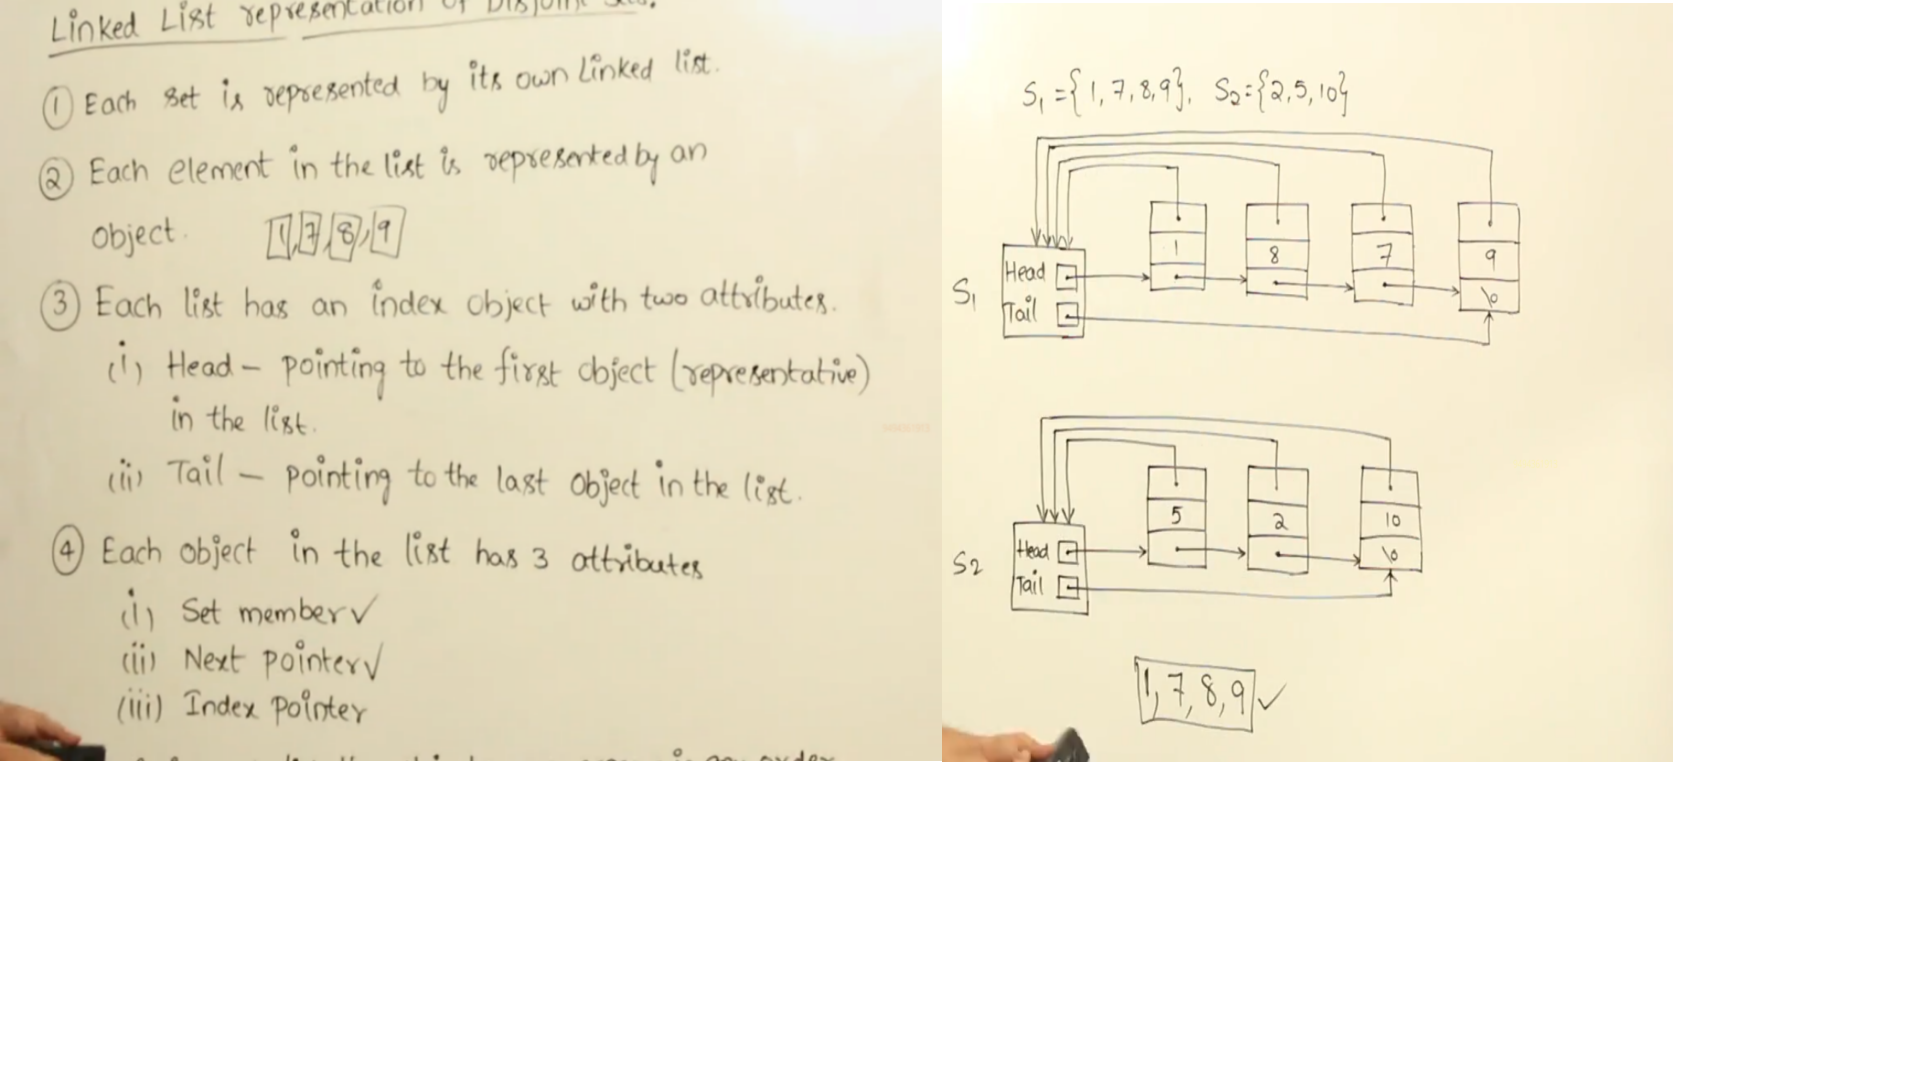 Linked List representation of Disjoint
① Each set is represented by its own Linked list.
② Each element in the list is represented by an
object. 1, 7, 8, 9
③ Each list has an index object with two attributes.
(i) Head – pointing to the first object (representative)
in the list.
(ii) Tail – pointing to the last object in the list.
④ Each object in the list has 3 attributes
(i) Set member ✓
(ii) Next pointer ✓
(iii) Index pointer
in any order
S₁ = {1, 7, 8, 9}, S₂ = {2, 5, 10}
S₁
Head
Tail
1
8
7
9
\0
S₂
Head
Tail
5
2
10
\0
1, 7, 8, 9 ✓